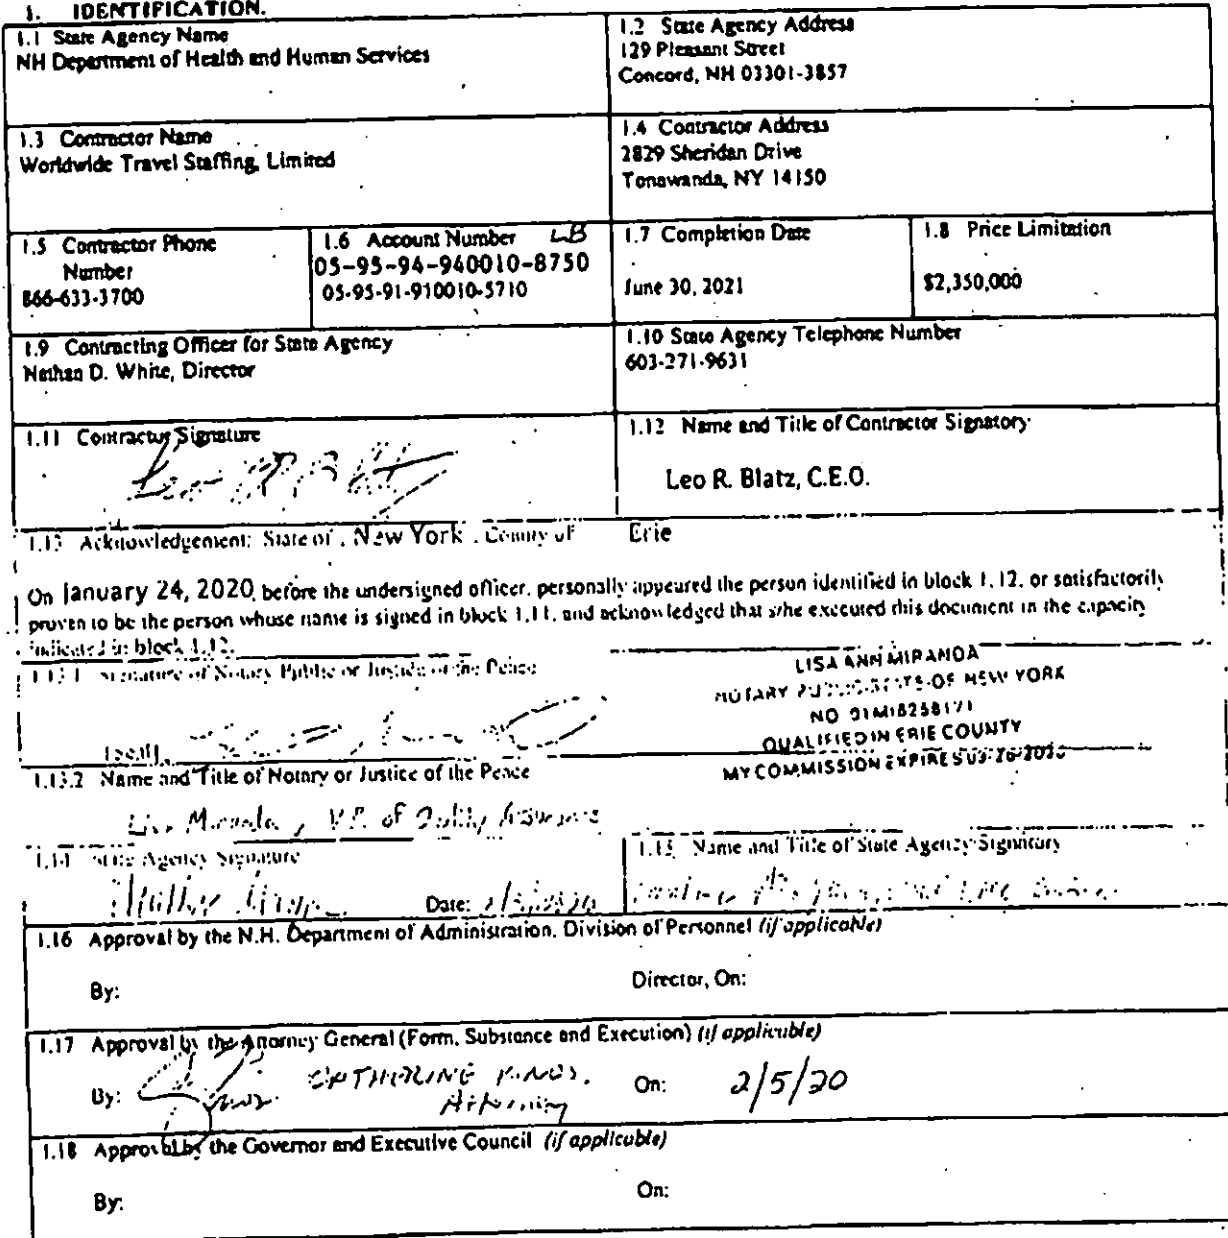 1. IDENTIFICATION.
1.1 State Agency Name
NH Department of Health and Human Services
1.2 State Agency Address
129 Pleasant Street
Concord, NH 03301-3857
1.3 Contractor Name
Worldwide Travel Staffing, Limited
1.4 Contractor Address
2829 Sheridan Drive
Tonawanda, NY 14150
1.5 Contractor Phone
Number
866-633-3700
1.6 Account Number LB
05-95-94-940010-8750
05-95-91-910010-5710
1.7 Completion Date
June 30, 2021
1.8 Price Limitation
$2,350,000
1.9 Contracting Officer for State Agency
Nathan D. White, Director
1.10 State Agency Telephone Number
603-271-9631
1.11 Contractor Signature
1.12 Name and Title of Contractor Signatory
Leo R. Blatz, C.E.O.
1.13 Acknowledgement: State of , New York , County of Erie
On January 24, 2020, before the undersigned officer, personally appeared the person identified in block 1.12, or satisfactorily
proven to be the person whose name is signed in block 1.11, and acknowledged that s/he executed this document in the capacity
indicated in block 1.12.
1.13.1 Signature of Notary Public or Justice of the Peace
[Seal]
LISA ANN MIRANDA
NOTARY PUBLIC-STATE-OF NEW YORK
NO
QUALIFIED IN ERIE COUNTY
MY COMMISSION EXPIRES
1.13.2 Name and Title of Notary or Justice of the Peace
Lisa Miranda, V.P. of Quality Assurance
1.14 State Agency Signature
Date:
1.15 Name and Title of State Agency Signatory
1.16 Approval by the N.H. Department of Administration, Division of Personnel (if applicable)
By: Director, On:
1.17 Approval by the Attorney General (Form, Substance and Execution) (if applicable)
By: CATHERINE PINOS, On: 2/5/20
Attorney
1.18 Approval by the Governor and Executive Council (if applicable)
By: On: